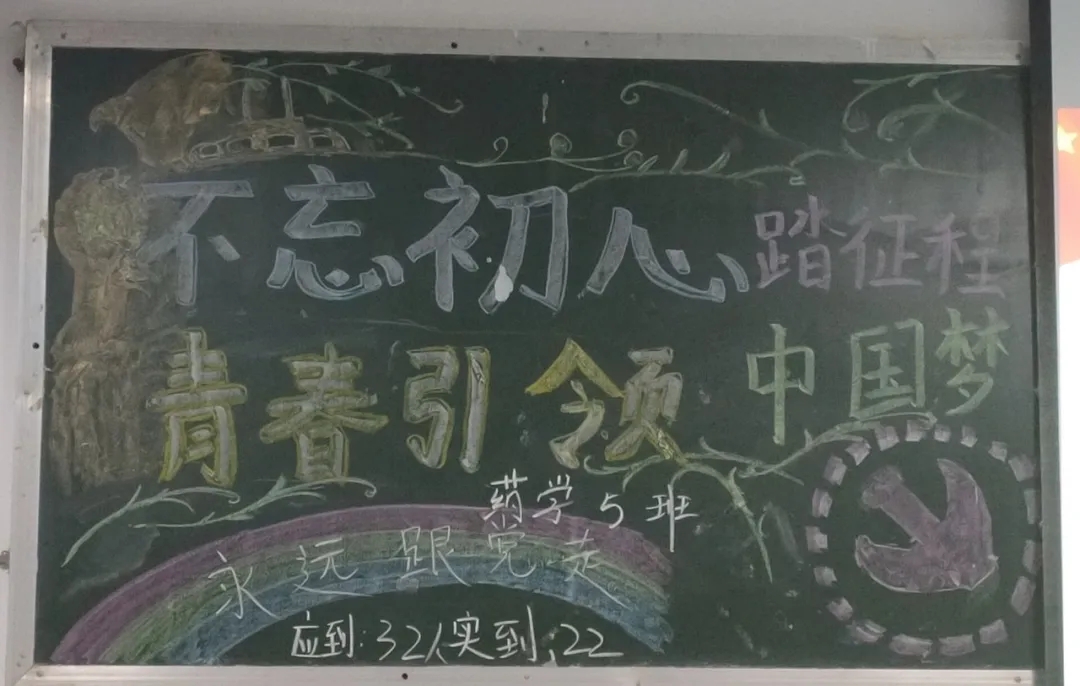 不忘初心 踏征程
青春引领 中国梦
药学5班
永远跟党走
应到:32人实到:22